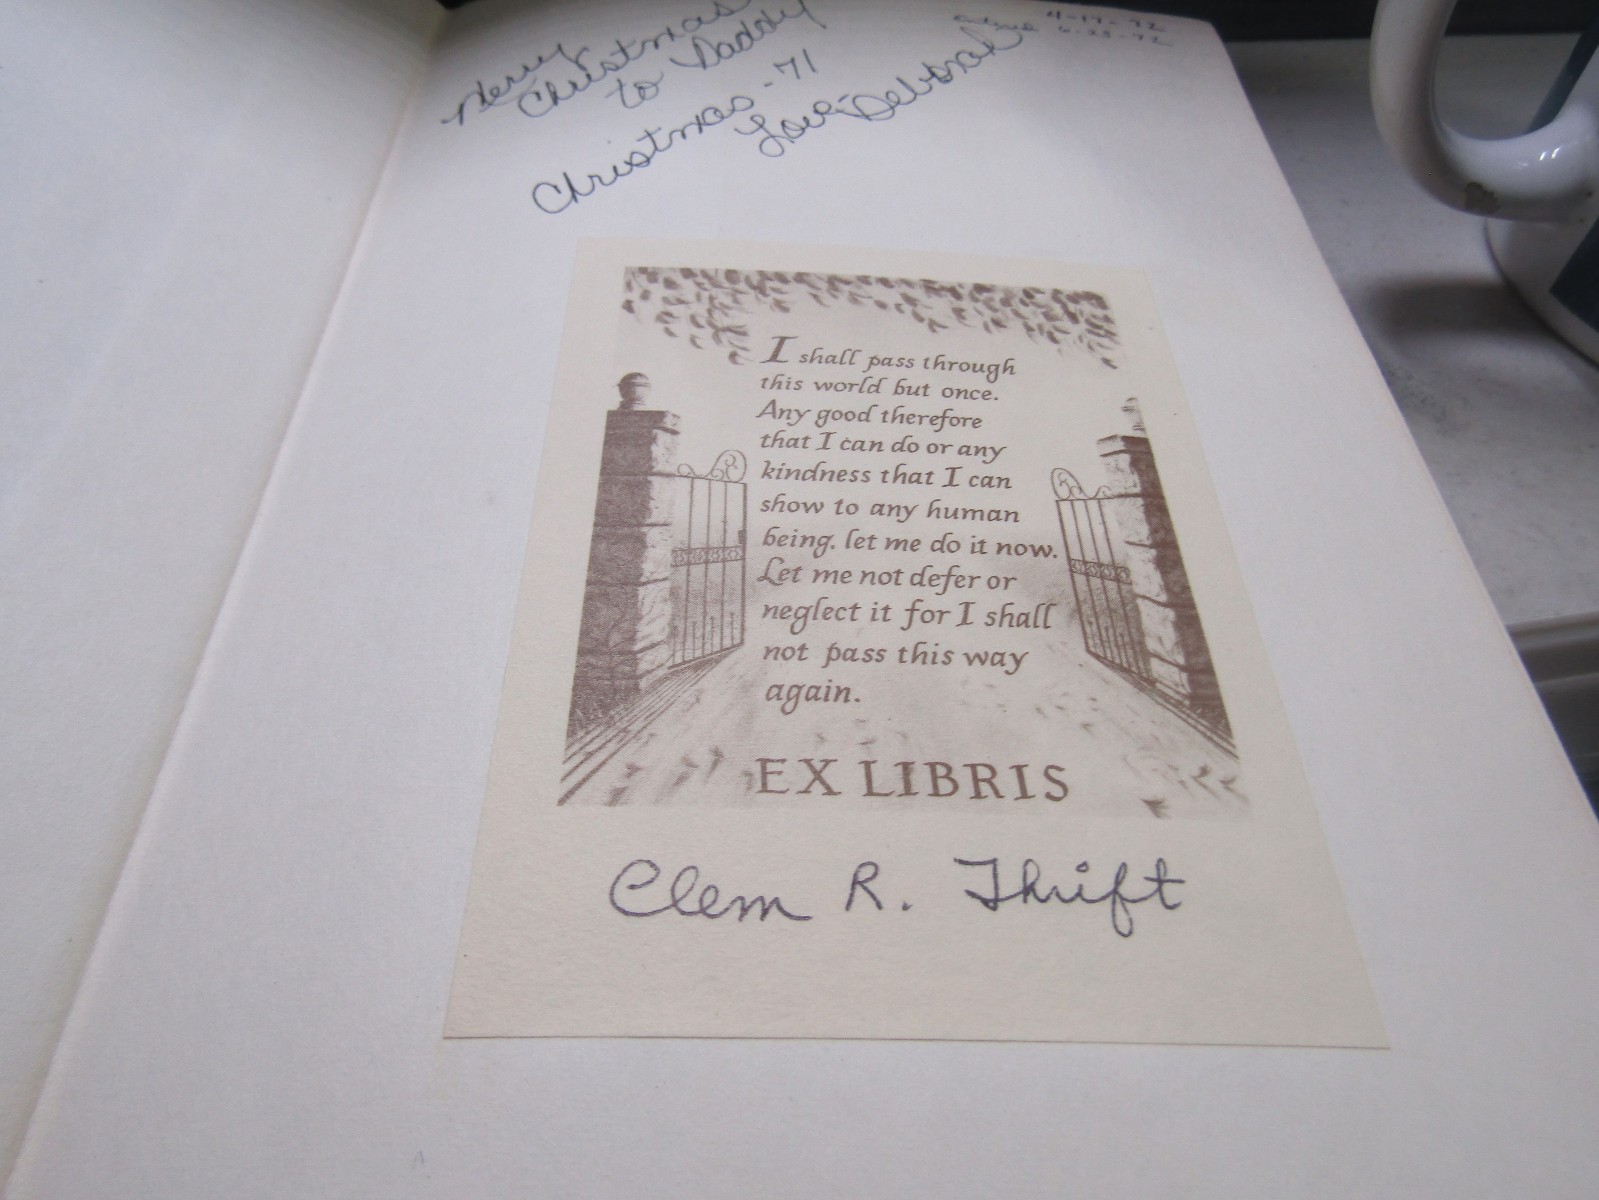 Merry
Christmas
to Daddy
Christmas-71
Love-Deborah
4-17-72
6-23-72
I shall pass through
this world but once.
Any good therefore
that I can do or any
kindness that I can
show to any human
being. let me do it now.
Let me not defer or
neglect it for I shall
not pass this way
again.
EX LIBRIS
Clem R. Thrift